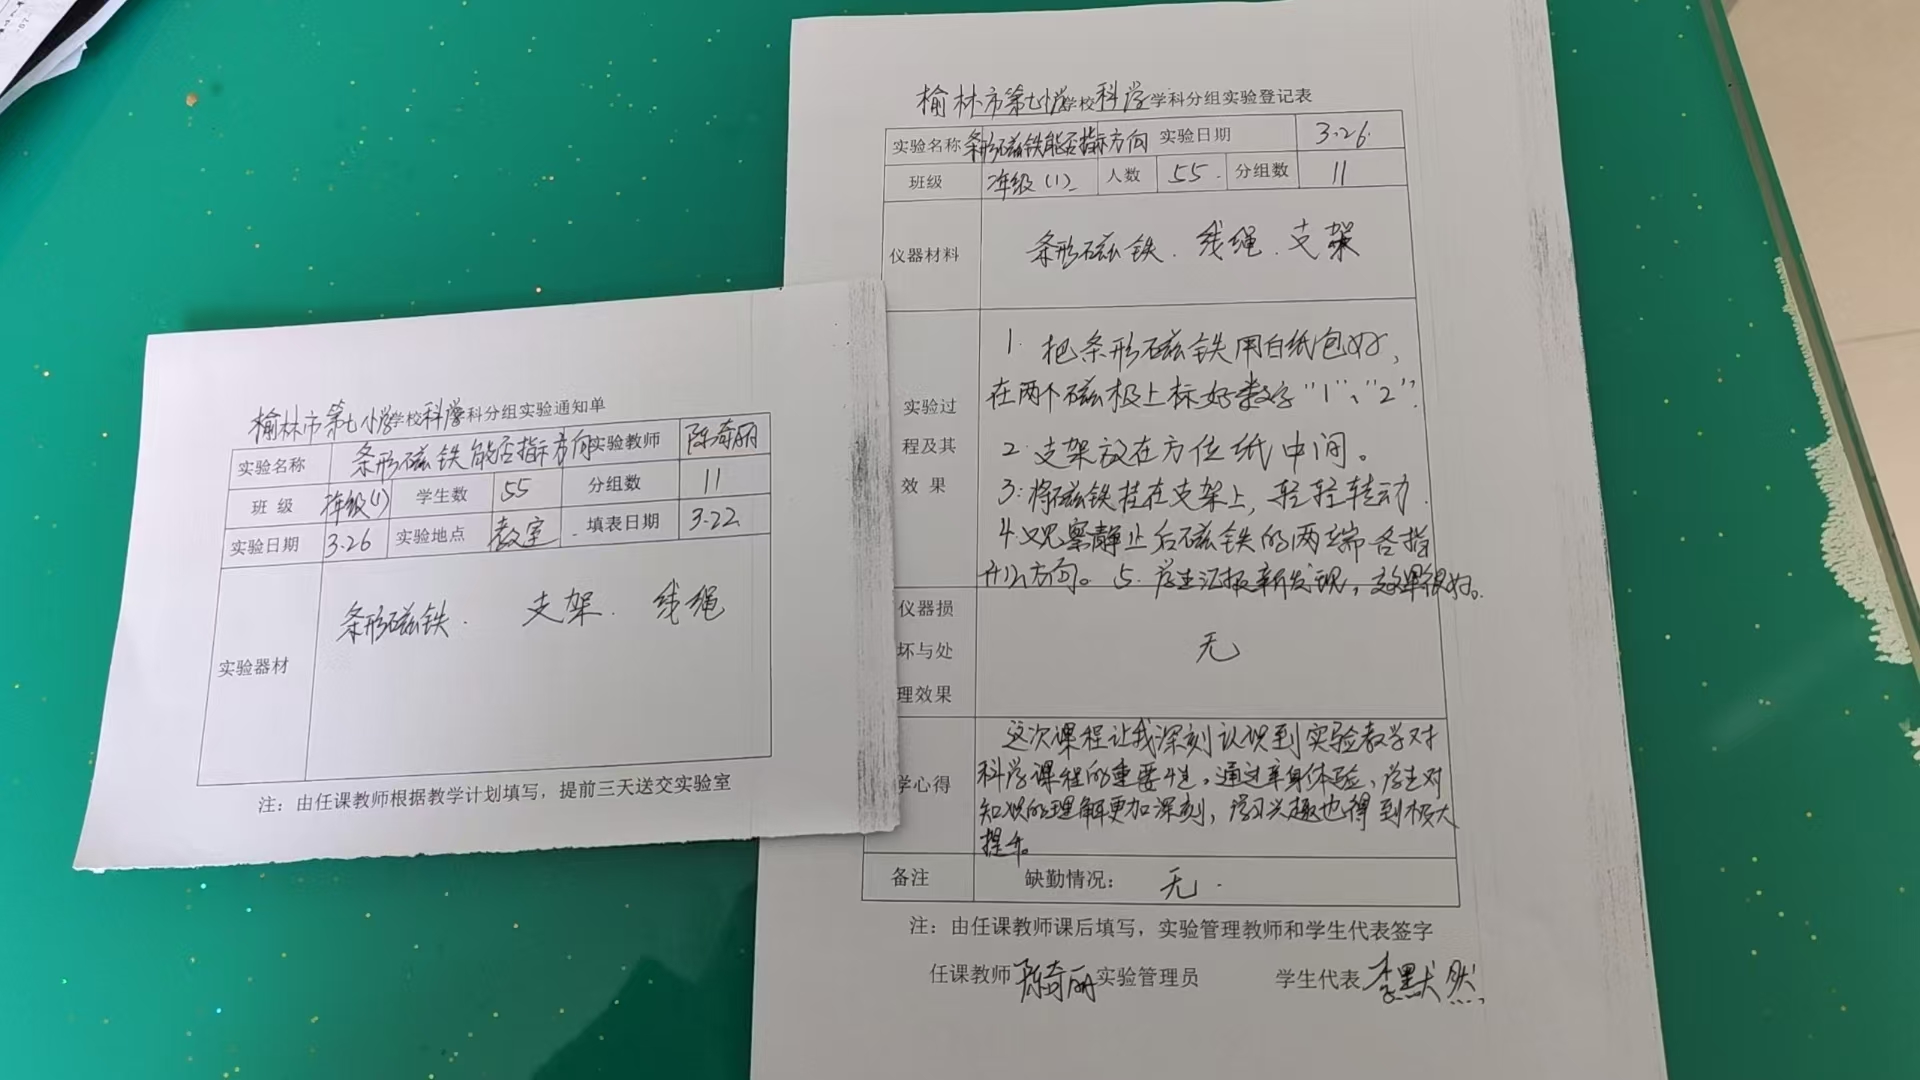 榆林市第七小学学校科学学科分组实验通知单
实验名称 条形磁铁能否指标方向 实验教师 陈奇丽
班 级 年级(1) 学生数 55 分组数 11
实验日期 3.26 实验地点 教室. 填表日期 3.22
实验器材 条形磁铁. 支架. 线绳
注：由任课教师根据教学计划填写，提前三天送交实验室
榆林市第七小学学校科学学科分组实验登记表
实验名称 条形磁铁能否指标方向 实验日期 3.26.
班级 年级(1) 人数 55. 分组数 11
仪器材料 条形磁铁. 线绳. 支架
实验过程及其效果
1. 把条形磁铁用白纸包好，
在两个磁极上标好数字“1”、“2”.
2. 支架放在方位纸中间。
3. 将磁铁挂在支架上，轻轻转动.
4. 观察静止后磁铁的两端各指
什么方向。 5. 学生汇报新发现，效果很好。
仪器损坏与处理效果 无
学心得
这次课程让我深刻认识到实验教学对
科学课程的重要性。通过亲身体验，学生对
知识的理解更加深刻，学习兴趣也得到极大
提升。
备注 缺勤情况： 无.
注：由任课教师课后填写，实验管理教师和学生代表签字
任课教师 陈奇丽 实验管理员 学生代表 李默然